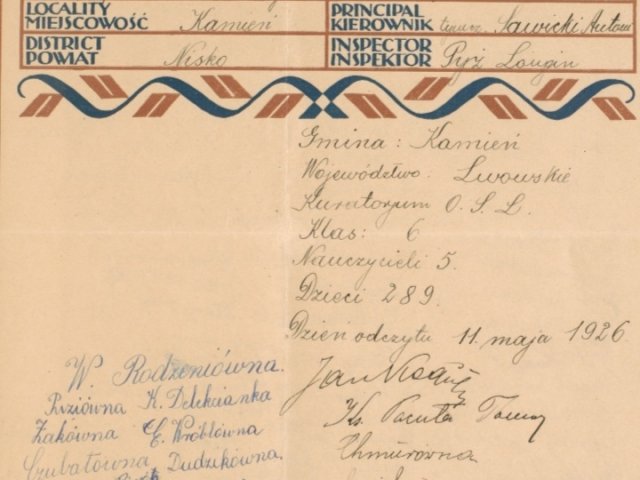 LOCALITY
MIEJSCOWOŚĆ Kamień
PRINCIPAL
KIEROWNIK tymcz. Sawicki Antoni
DISTRICT
POWIAT Nisko
INSPECTOR
INSPEKTOR Pyż Longin
Gmina: Kamień
Województwo: Lwowskie
Kuratorjum O. S. L.
Klas: 6
Nauczycieli 5.
Dzieci 289.
Dzień odczytu 11. maja 1926.
W. Rodzeniówna.
K. Delekcianka
Żakówna E. Wróblówna
Czubatówna Dudzikówna.
Jan
Ks. Tomasz
Chmurówna